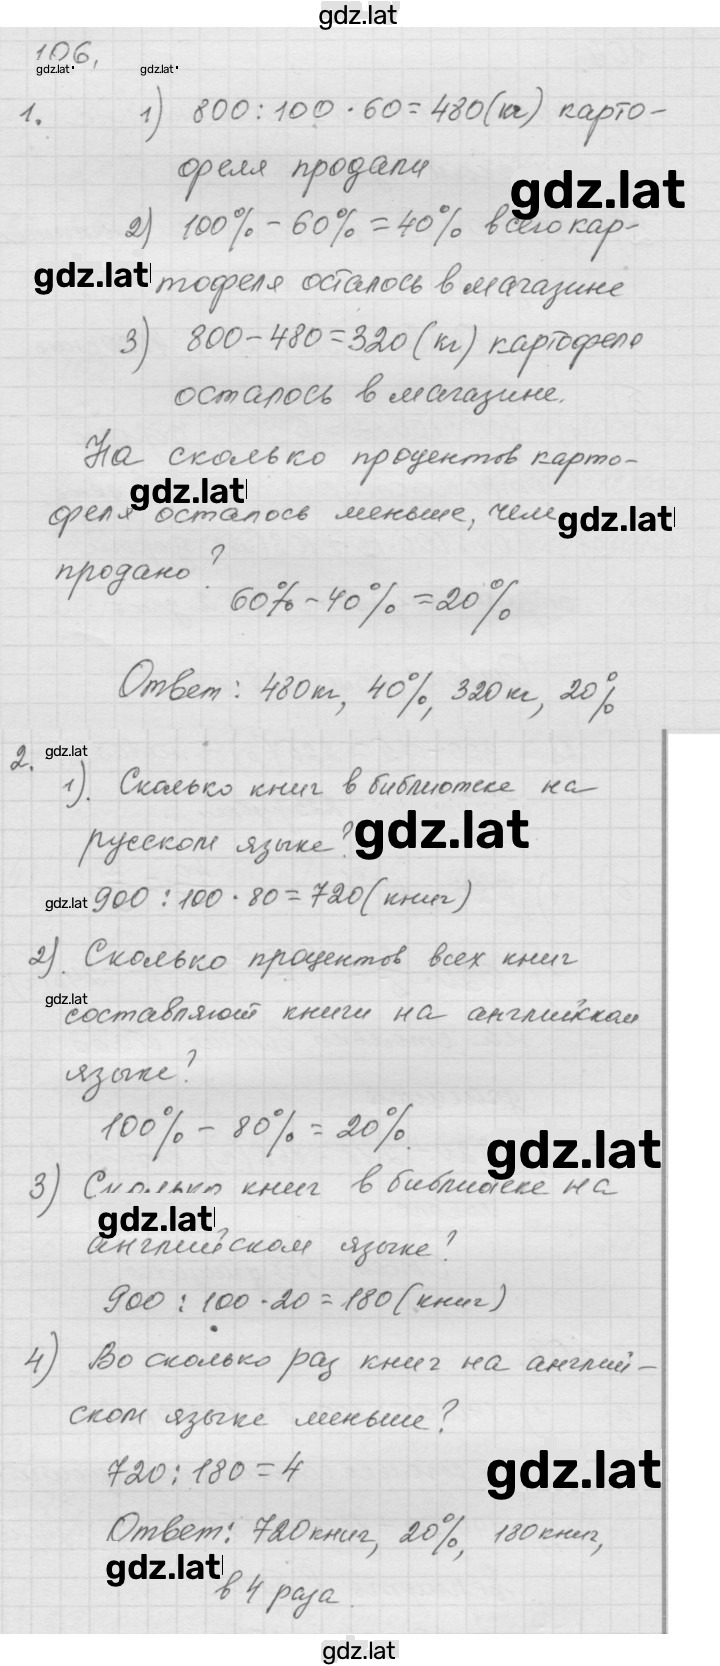 gdz.lat
106,
gdz.lat gdz.lat
1. 1) 800 : 100 · 60 = 480 (кг) карто-
феля продали
gdz.lat
2) 100% - 60% = 40% всего кар-
gdz.lat
тофеля осталось в магазине
3) 800 - 480 = 320 (кг) картофеля
осталось в магазине.
На сколько процентов карто-
gdz.lat
феля осталось меньше, чем
gdz.lat
продано?
60% - 40% = 20%
Ответ: 480 кг, 40%, 320 кг, 20%
2. gdz.lat
1). Сколько книг в библиотеке на
русском языке?
gdz.lat
gdz.lat 900 : 100 · 80 = 720 (книг)
2). Сколько процентов всех книг
gdz.lat
составляют книги на английском
языке?
100% - 80% = 20%.
gdz.lat
3) Сколько книг в библиотеке на
gdz.lat
английском языке?
900 : 100 · 20 = 180 (книг)
4) Во сколько раз книг на англий-
ском языке меньше?
720 : 180 = 4
gdz.lat
Ответ: 720 книг, 20%, 180 книг,
gdz.lat
в 4 раза.
gdz.lat